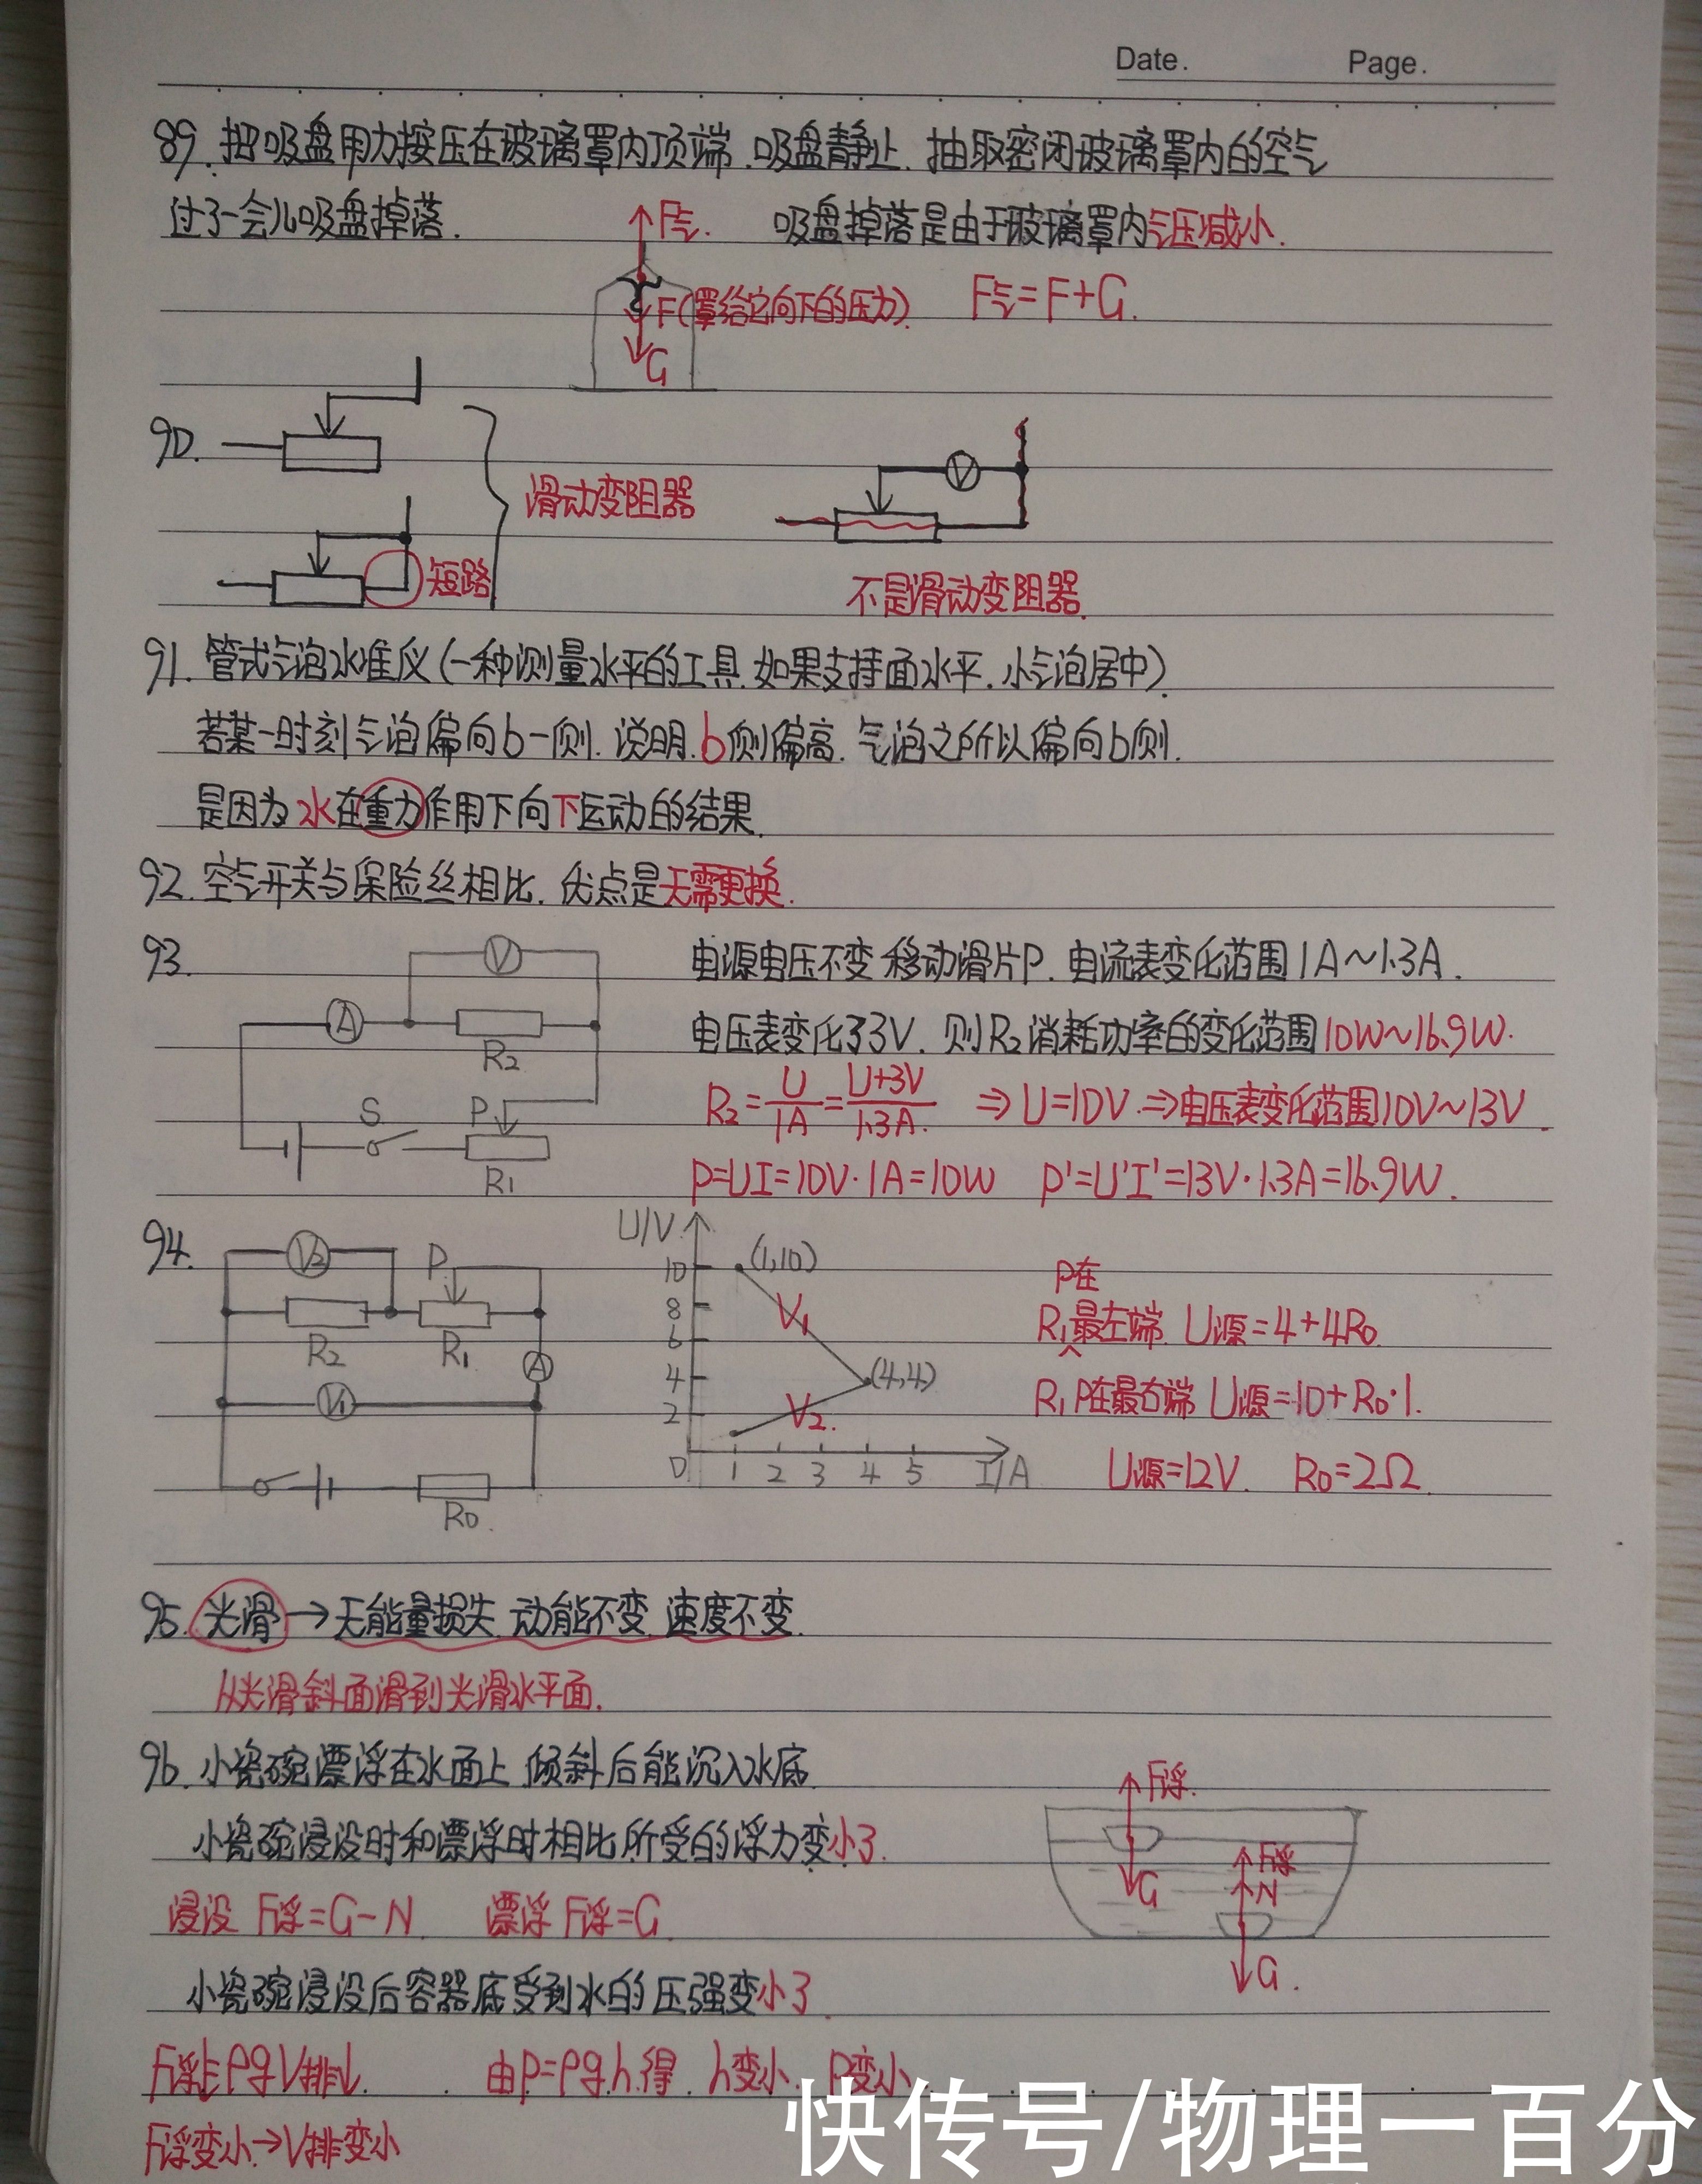 Date. Page.
89. 把吸盘用力按压在玻璃罩内顶端. 吸盘静止. 抽取密闭玻璃罩内的空气
过了一会儿吸盘掉落. F气. 吸盘掉落是由于玻璃罩内气压减小.
F(罩给它向下的压力). F气=F+G.
G
90.
滑动变阻器
V
短路
不是滑动变阻器.
91. 管式气泡水准仪(一种测量水平的工具. 如果支持面水平. 小气泡居中).
若某一时刻气泡偏向b一侧. 说明. b侧偏高. 气泡之所以偏向b侧.
是因为水在重力作用下向下运动的结果.
92. 空气开关与保险丝相比. 优点是无需更换.
93. V 电源电压不变 移动滑片P. 电流表变化范围1A~1.3A.
A R₂ 电压表变化了3V. 则R₂消耗功率的变化范围10W~16.9W.
S P R₂=U/1A=U+3V/1.3A. ⇒U=10V.⇒电压表变化范围10V~13V.
R₁ P=UI=10V·1A=10W P'=U'I'=13V·1.3A=16.9W.
94. V₂ P U/V
10 (1,10) P在
8 V₁ R₁最左端. U源=4+4R₀.
R₂ R₁ 6
A 4 (4,4)
V₁ 2 V₂. R₁P在最右端 U源=10+R₀·1.
0 1 2 3 4 5 I/A U源=12V. R₀=2Ω.
R₀.
95. 光滑→无能量损失. 动能不变. 速度不变.
从光滑斜面滑到光滑水平面.
96. 小瓷碗漂浮在水面上. 倾斜后能沉入水底. F浮.
小瓷碗浸没时和漂浮时相比所受的浮力变小了. F浮
G N
浸没 F浮=G-N. 漂浮 F浮=G.
小瓷碗浸没后容器底受到水的压强变小了. G.
F浮↓=ρgV排↓. 由p=ρgh.得. h变小. P变小.
F浮变小.→V排变小
快传号/物理一百分